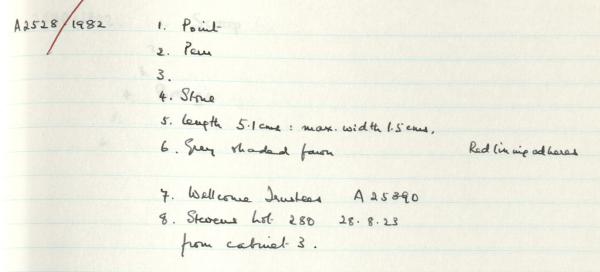 A2528/1982 1. Point
2. Peru
3.
4. Stone
5. Length 5.1 cms : max. width 1.5 cms.
6. Grey shaded fawn Red lining adheres
7. Wellcome Trustees A 25390
8. Stevens Lot 280 28.8.23
from cabinet 3.